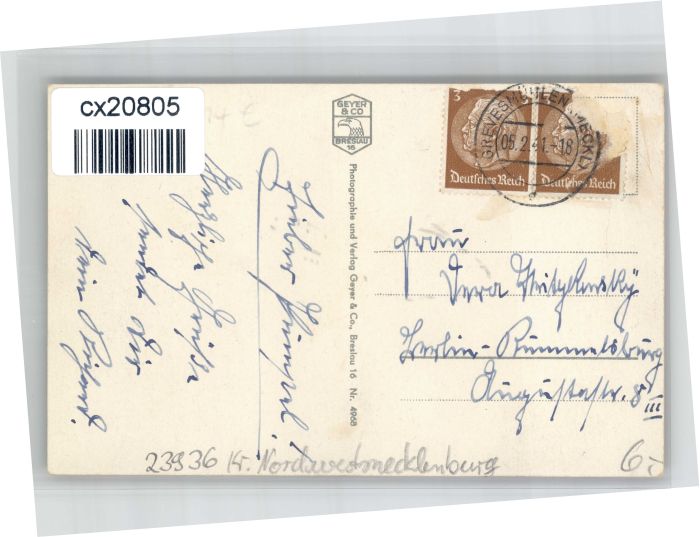 cx20805
GEYER
& CO
BRESLAU
16
3
Deutsches Reich
Deutsches Reich
GREVESMÜHLEN (MECKL)
05.2.41.-18
Photographie und Verlag Geyer & Co., Breslau 16 Nr. 4968
Lieber
Herzliche Grüße
sendet Dir
Dein
Frau
Vera
Berlin-Rummelsburg
Augustastr. 8 III
23936 Kr. Nordwestmecklenburg
6,-